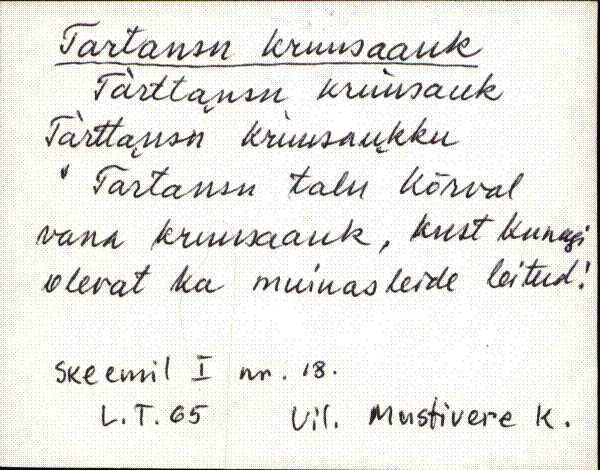 Tartansu kruusaauk
Tàrttansu krùusauk
Tàrttansu krùusaukku
Tartansu talu kõrval
vana kruusaauk, kust kunagi
olevat ka muinasleide leitud.
Skeemil I nr. 18.
L.T. 65 Vil. Mustivere K.